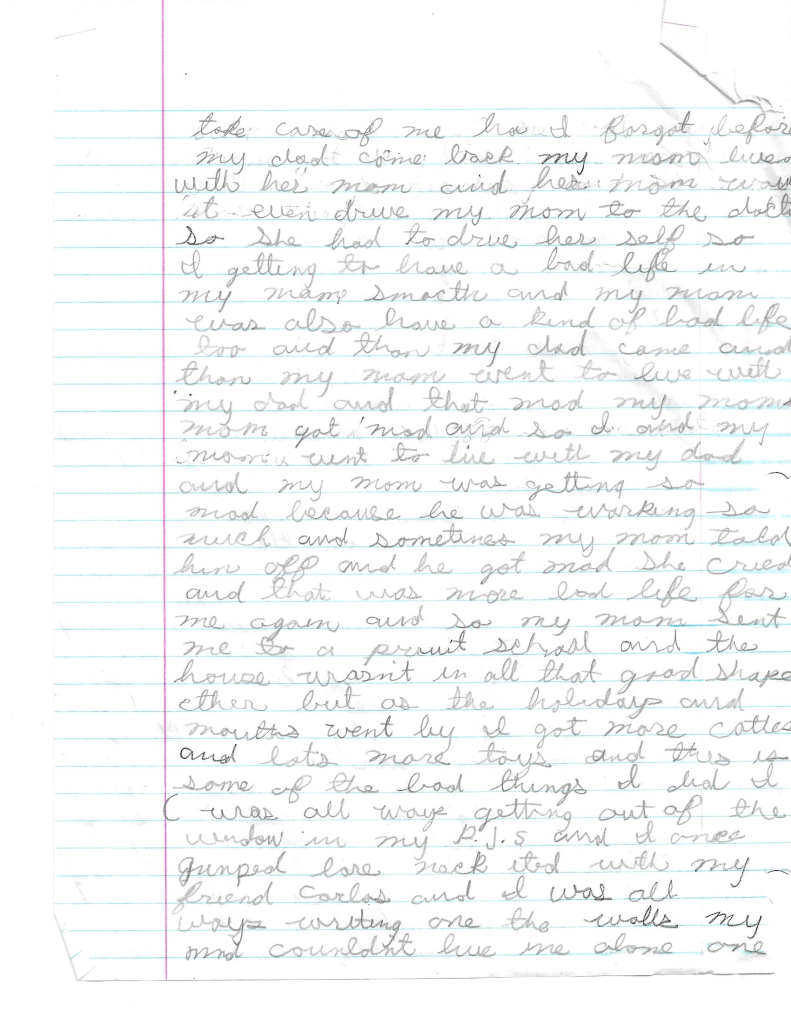 take care of me ha I forgot before
my dad come back my mom lives
with her mom and her mom
it even drive my mom to the
so she had to drue her self so
I getting to have a bad life in
my mams and my mom
was also have a kind of bad life
too and than my dad came and
than my mom went to live with
my dad and that mad my moms
mom got mad and so I and my
mom went to live with my dad
and my mom was getting so
mad because he was working so
much and sometimes my mom told
him off and he got mad she cried
and that was more bad life for
me again and so my mom sent
me to a school and the
house wasn't in all that good shape
ether but as the holidays and
mouths went by I got more
and lots more toys and this is
some of the bad things I did I
( was all ways getting out of the
window in my P.J.s and I once
gunped neck with my
friend Carlos and I was all
ways writing one the walls my
counldn't live me alone one